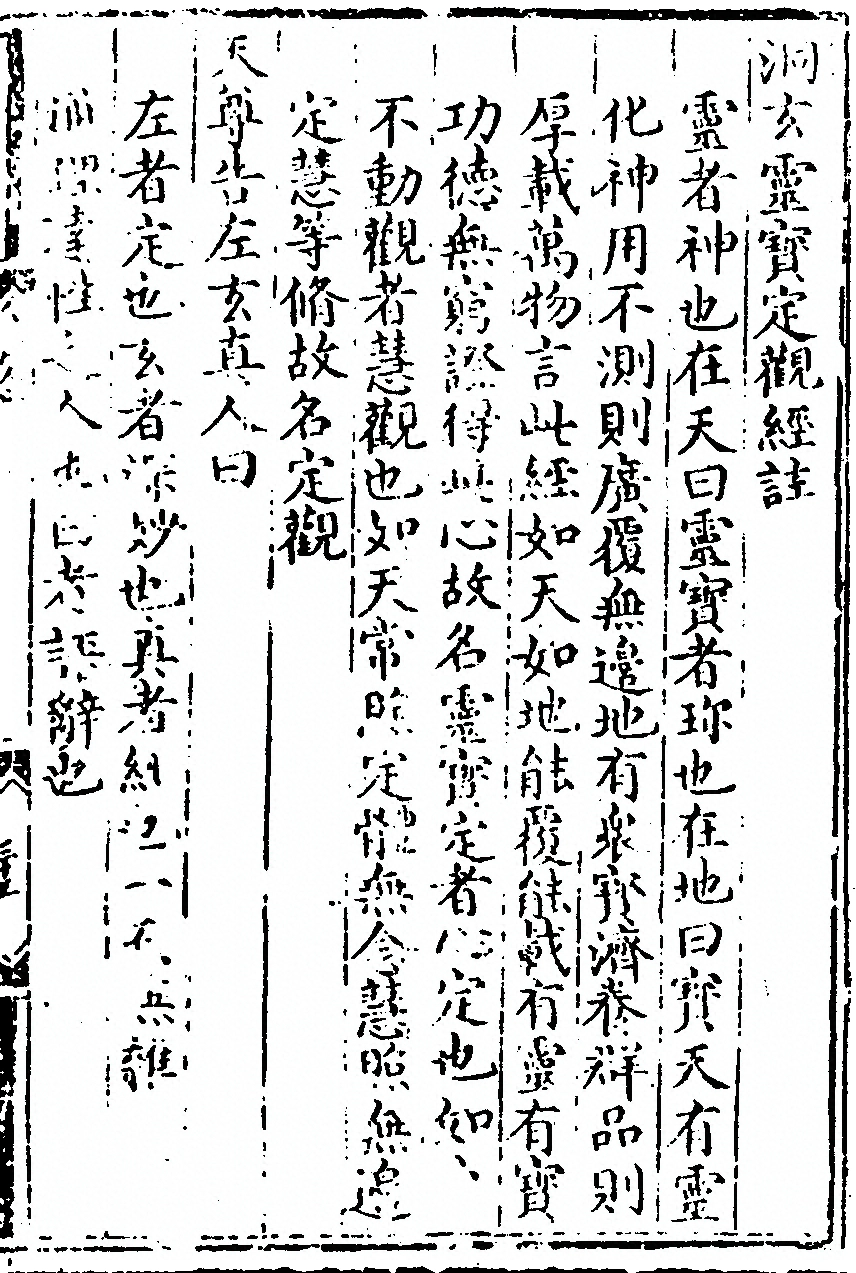 洞玄靈寶定觀經註
靈者神也在天曰靈寶者珎也在地曰寳天有靈
化神用不測則廣覆無邊地有衆寳濟養群品則
厚載萬物言此經如天如地能覆能載有靈有寶
功德無窮證得此心故名靈寳定者心定也如
不動觀者慧觀也如天常照定體無念慧照無邊
定慧等脩故名定觀
天尊告左玄真人曰
左者定也玄者深妙也真者純也一而無雜
通理達性之人也曰者語辭也